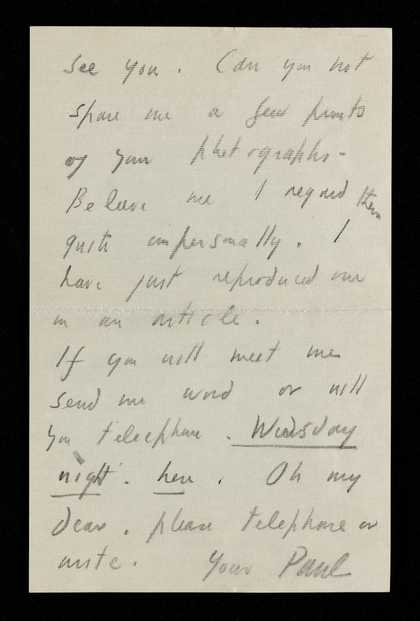 see you. Can you not
spare me a few prints
of your photographs -
Believe me I regard them
quite impersonally. I
have just reproduced one
in an article.
If you will meet me
send me word or will
you telephone. Wedsday
night. here. Oh my
dear. please telephone or
write. Your Paul